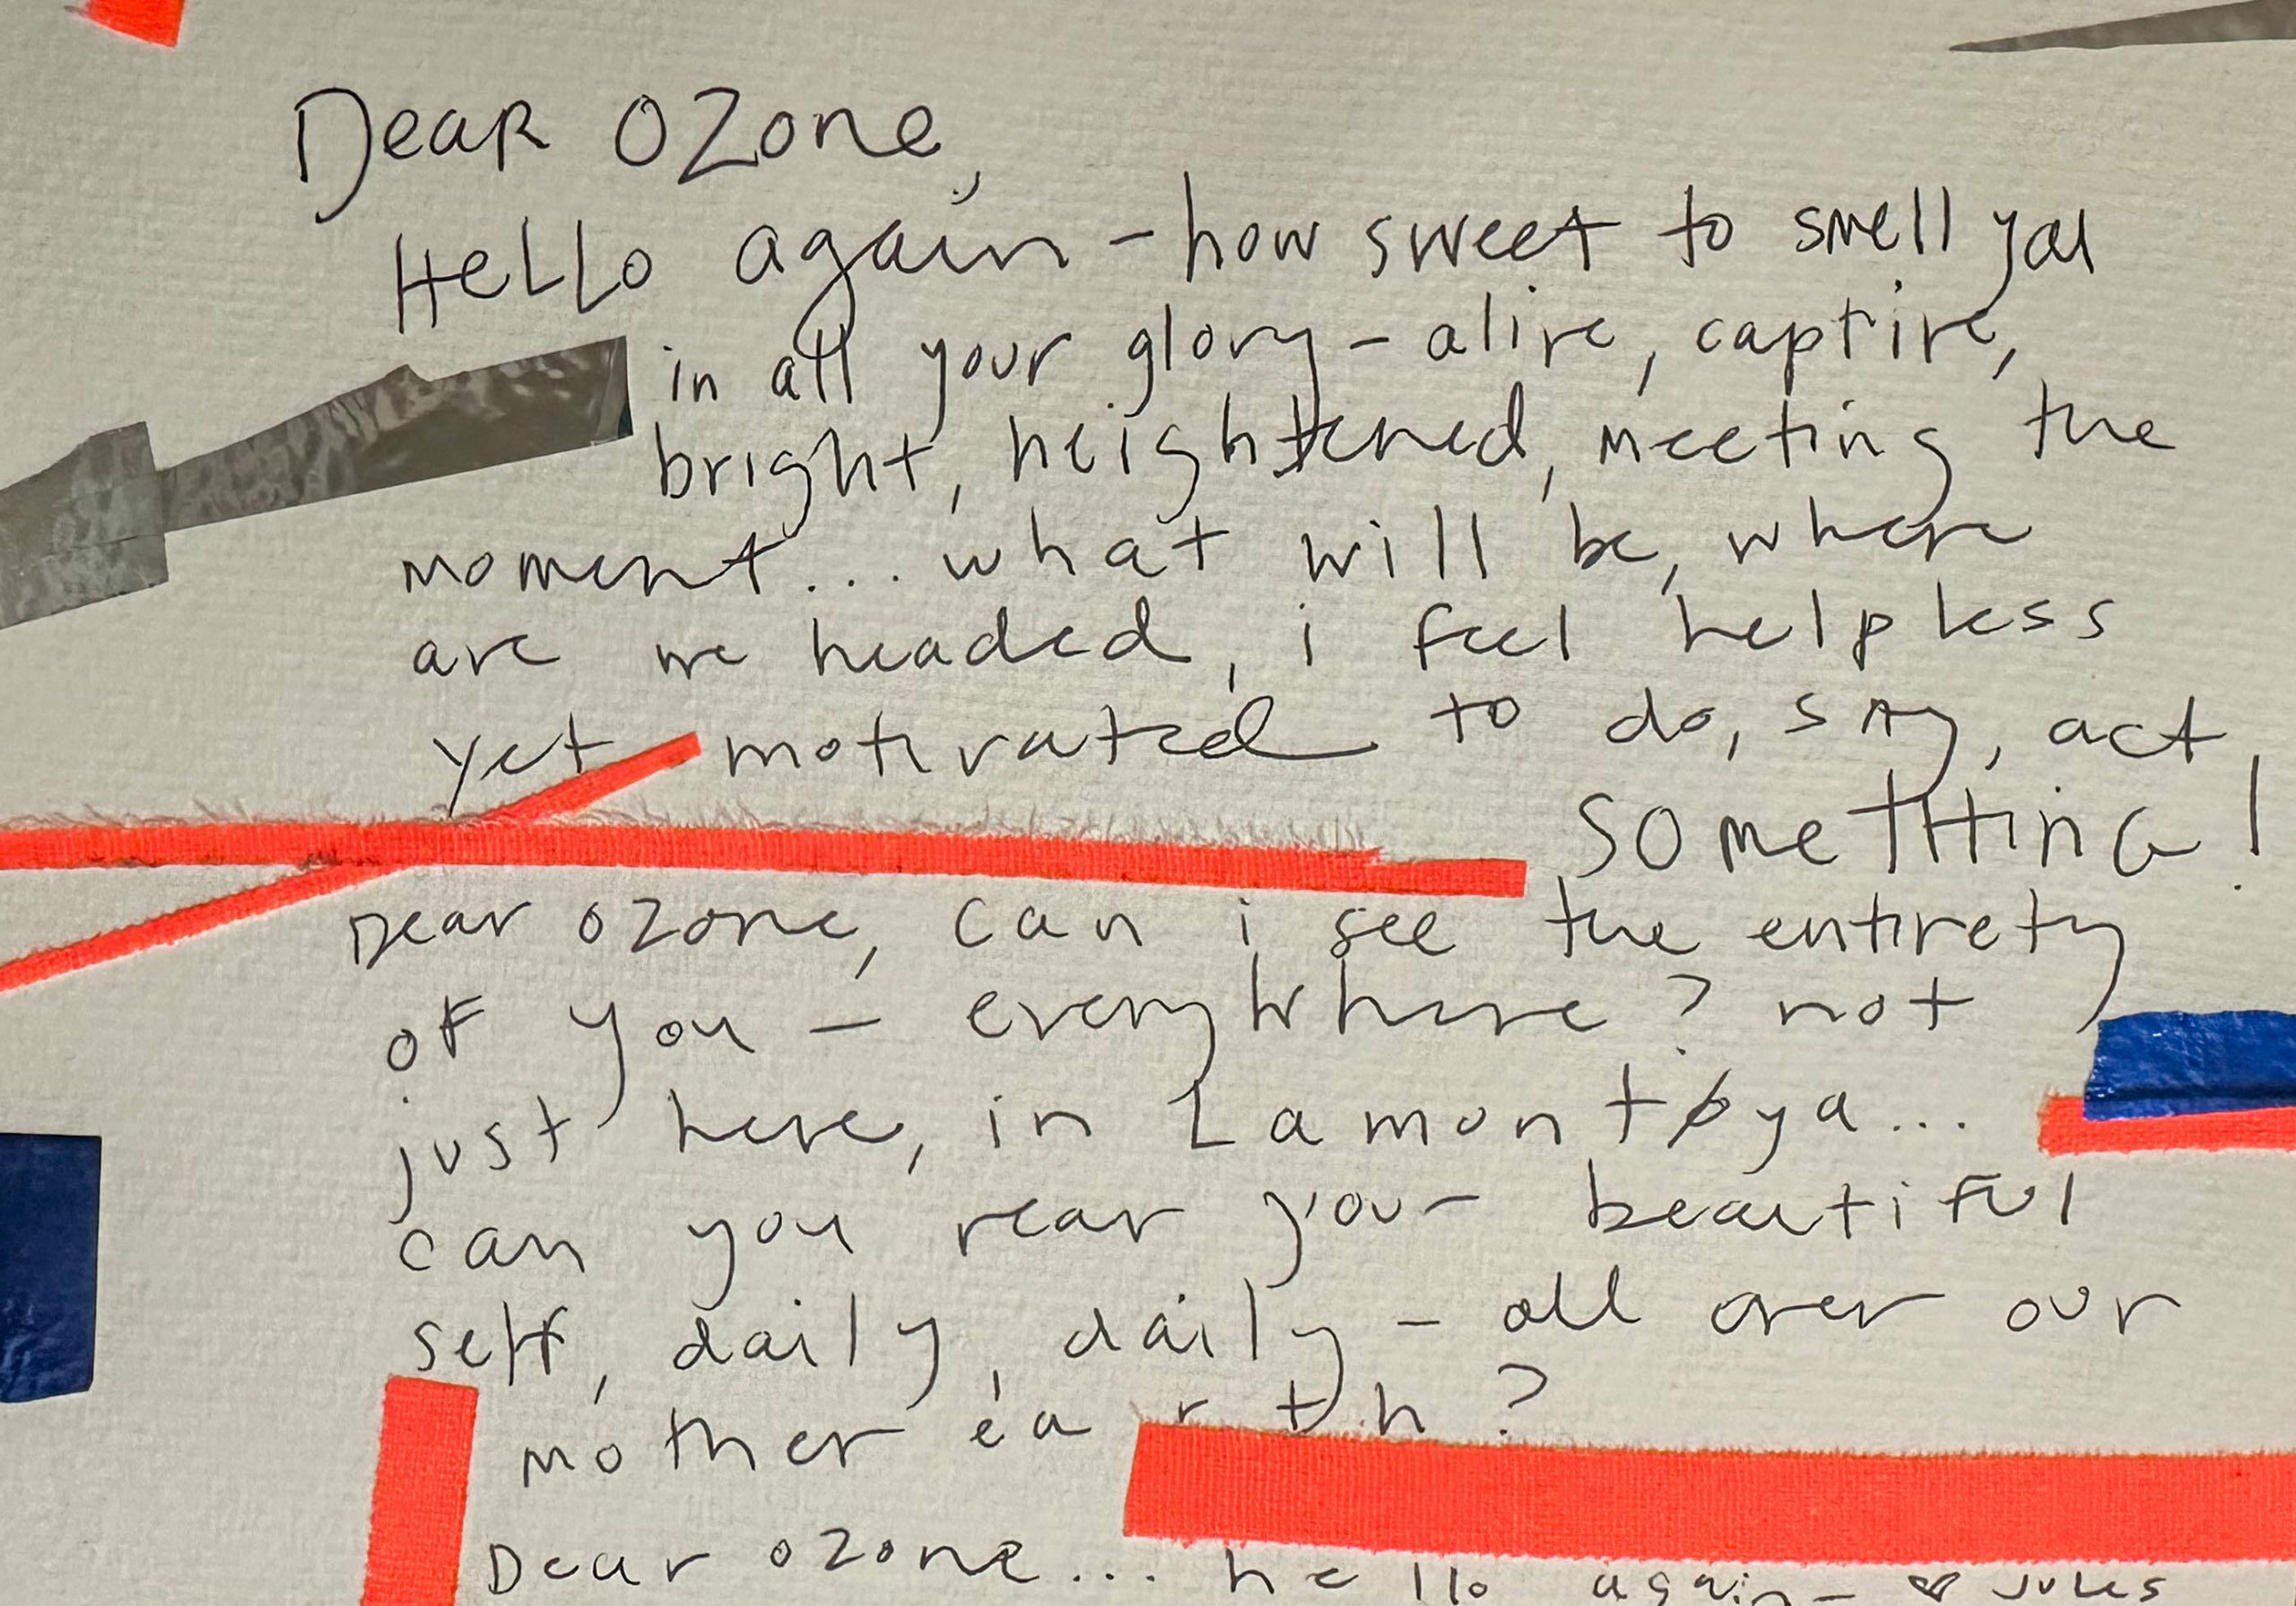 Dear Ozone,
Hello again - how sweet to smell you
in all your glory - alive, captive,
bright, heightened, meeting the
moment... what will be, where
are we headed, i feel helpless
yet motivated to do, say, act,
SOMETHING!
Dear Ozone, can i see the entirety
of you - everywhere? not
just here, in Lamontøya...
can you rear your beautiful
self, daily, daily - all over our
mother earth?
Dear Ozone... hello again - ♡ Jules